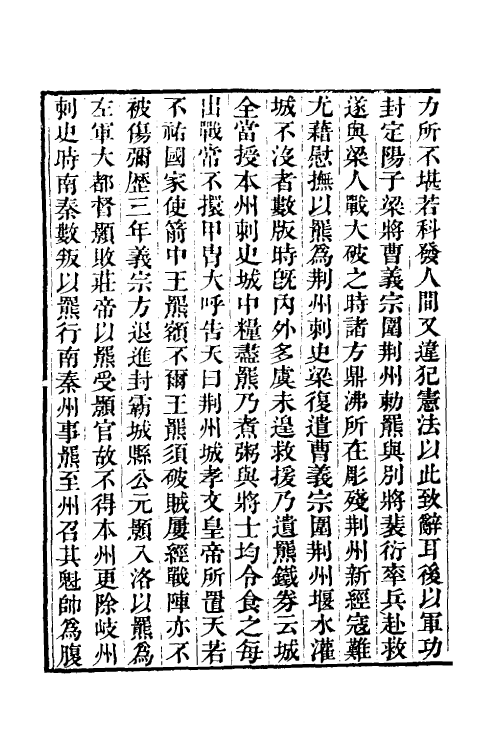 力所不堪若科發人間又違犯憲法以此致辭耳後以軍功
封定陽子梁將曹義宗圍荆州勅羆與別將裴衍率兵赴救
遂與梁人戰大破之時諸方鼎沸所在彫殘荆州新經寇難
尤藉慰撫以羆爲荆州刺史梁復遣曹義宗圍荆州堰水灌
城不沒者數版時旣內外多虞未遑救援乃遺羆鐵券云城
全當授本州刺史城中糧盡羆乃煮粥與將士均分食之每
出戰常不擐甲冑大呼告天曰荆州城孝文皇帝所置天若
不祐國家使箭中王羆額不爾王羆須破賊屢經戰陣亦不
被傷彌歷三年義宗方退進封霸城縣公元顥入洛以羆爲
左軍大都督顥敗莊帝以羆受顥官故不得本州更除岐州
刺史時南秦數叛以羆行南秦州事羆至州召其魁帥爲腹